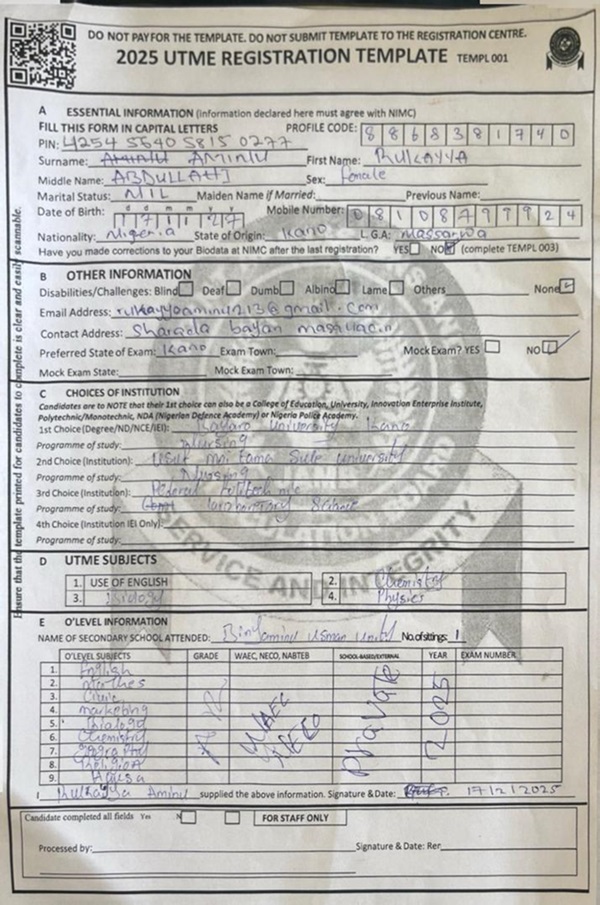 DO NOT PAY FOR THE TEMPLATE. DO NOT SUBMIT TEMPLATE TO THE REGISTRATION CENTRE.
2025 UTME REGISTRATION TEMPLATE TEMPL 001
A ESSENTIAL INFORMATION (information declared here must agree with NIMC)
FILL THIS FORM IN CAPITAL LETTERS PROFILE CODE: 8868381740
PIN: 4254 5640 5815 0277
Surname: AMINU First Name: RUKAYYA
Middle Name: ABDULLAHI Sex: female
Marital Status: NIL Maiden Name if Married: Previous Name:
Date of Birth: d d m m y y Mobile Number: 08108799924
Nationality: Nigeria State of Origin: Kano L.G.A:
Have you made corrections to your Biodata at NIMC after the last registration? YES NO (complete TEMPL 003)
B OTHER INFORMATION
Disabilities/Challenges: Blind Deaf Dumb Albino Lame Others None
Email Address:
Contact Address: Sharada bayan
Preferred State of Exam: Kano Exam Town: Mock Exam? YES NO
Mock Exam State: Mock Exam Town:
C CHOICES OF INSTITUTION
Candidates are to NOTE that their 1st choice can also be a College of Education, University, Innovation Enterprise Institute,
Polytechnic/Monotechnic, NDA (Nigerian Defence Academy) or Nigeria Police Academy.
1st Choice (Degree/ND/NCE/IEI): Bayaro University Kano
Programme of study: Nursing
2nd Choice (Institution): Sule University
Programme of study: Nursing
3rd Choice (Institution): Federal
Programme of study: Science
4th Choice (Institution IEI Only):
Programme of study:
D UTME SUBJECTS
1. USE OF ENGLISH 2. Chemistry
3. Biology 4. Physics
E O'LEVEL INFORMATION
NAME OF SECONDARY SCHOOL ATTENDED: Usman No. of sittings: 1
O'LEVEL SUBJECTS GRADE WAEC, NECO, NABTEB SCHOOL-BASED/EXTERNAL YEAR EXAM NUMBER
1. English
2. Mathes
3. Civic
4. marketing
5. Biology
6. Chemistry
7.
8.
9. Hausa
WAEC
NECO
Pravate
2025
I Rukayya Aminu supplied the above information. Signature & Date: 17/2/2025
Candidate completed all fields Yes FOR STAFF ONLY
Processed by: Signature & Date: Rer
Ensure that the template printed for candidates to complete is clear and easily scannable.
SERVICE AND INTEGRITY